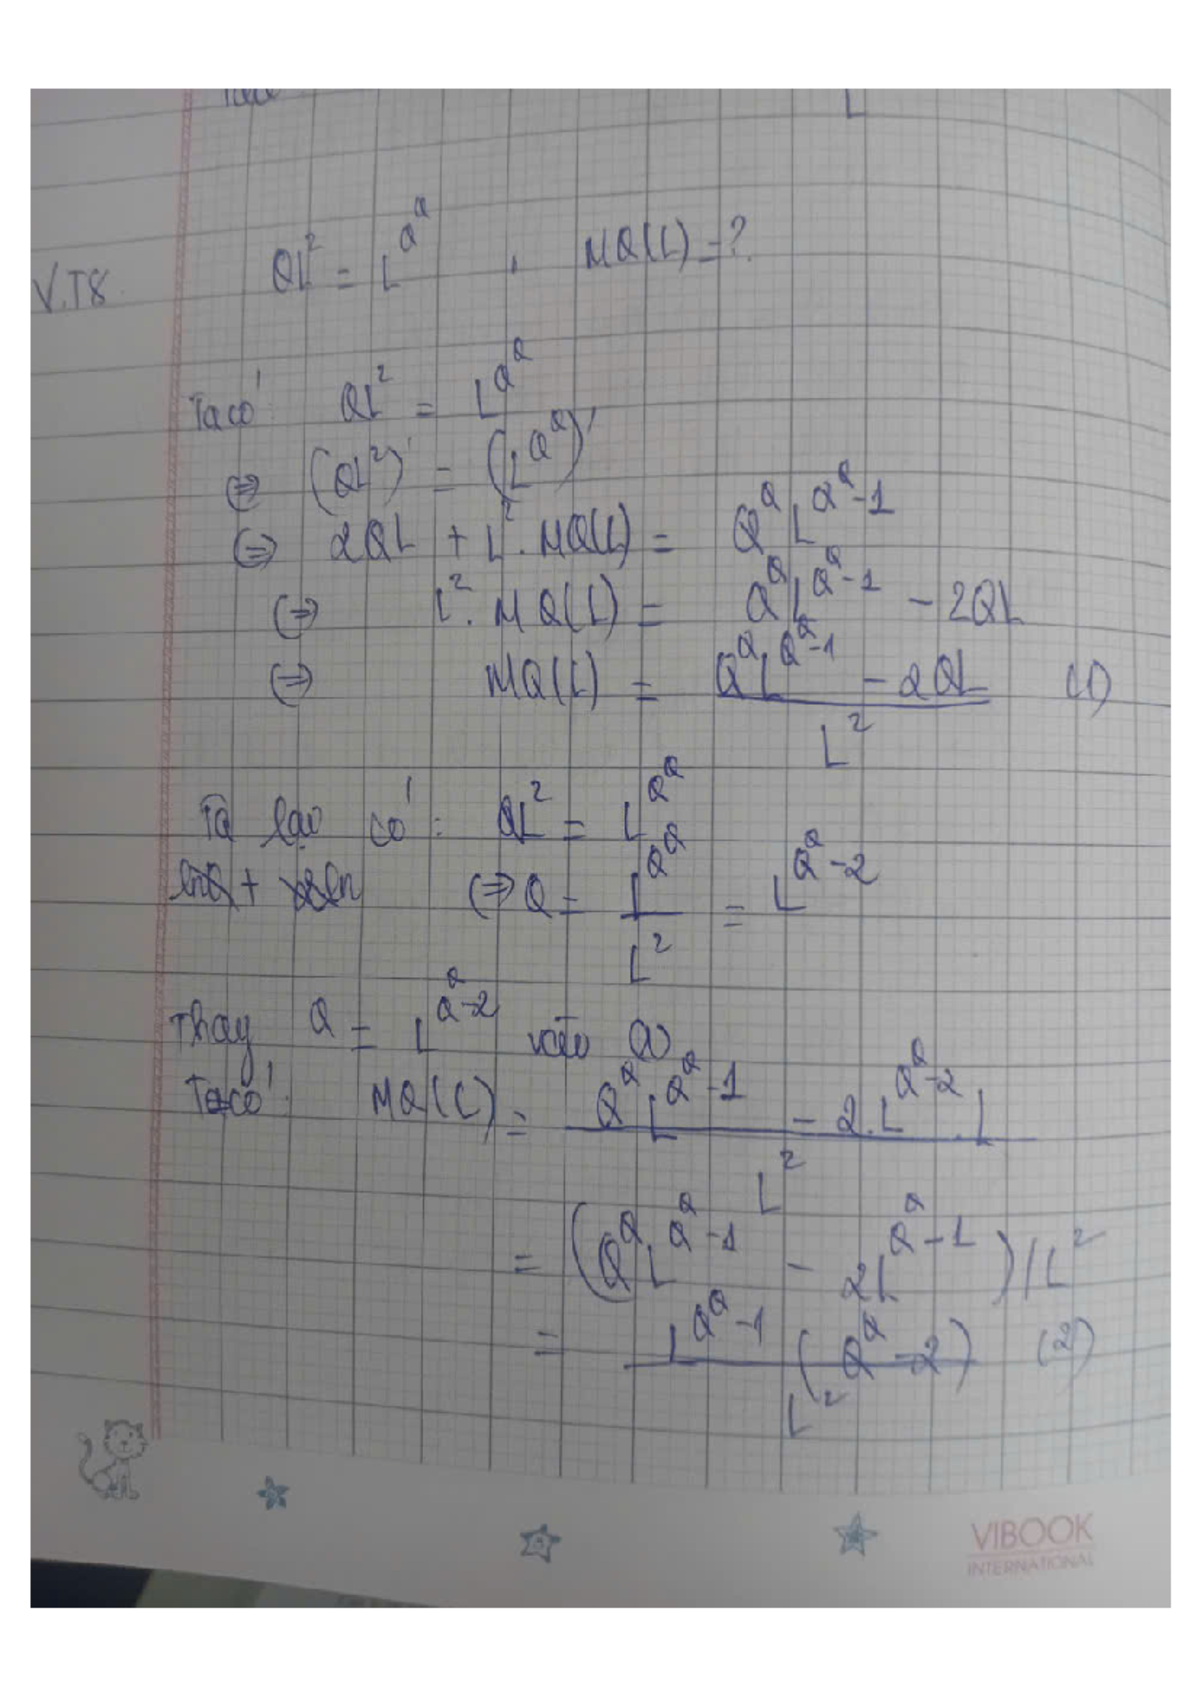 V.T8. QL² = L^Q^Q , MQ(L) = ?
Ta có QL² = L^Q^Q
⇔ (QL²)' = (L^Q^Q)'
⇔ 2QL + L². MQ(L) = Q^Q L^Q^Q-1
⇔ L². MQ(L) = Q^Q L^Q^Q-1 - 2QL
⇔ MQ(L) = Q^Q L^Q^Q-1 - 2QL (1)
L²
Ta lại có : QL² = L^Q^Q
⇔ Q = L^Q^Q / L² = L^Q^Q-2
Thay Q = L^Q^Q-2 vào (1)
Ta có MQ(L) = Q^Q L^Q^Q-1 - 2.L^Q^Q-2.L
L²
= (Q^Q L^Q^Q-1 - 2L^Q^Q-1) / L²
= L^Q^Q-1 (Q^Q-2) (2)
L²
VIBOOK
INTERNATIONAL